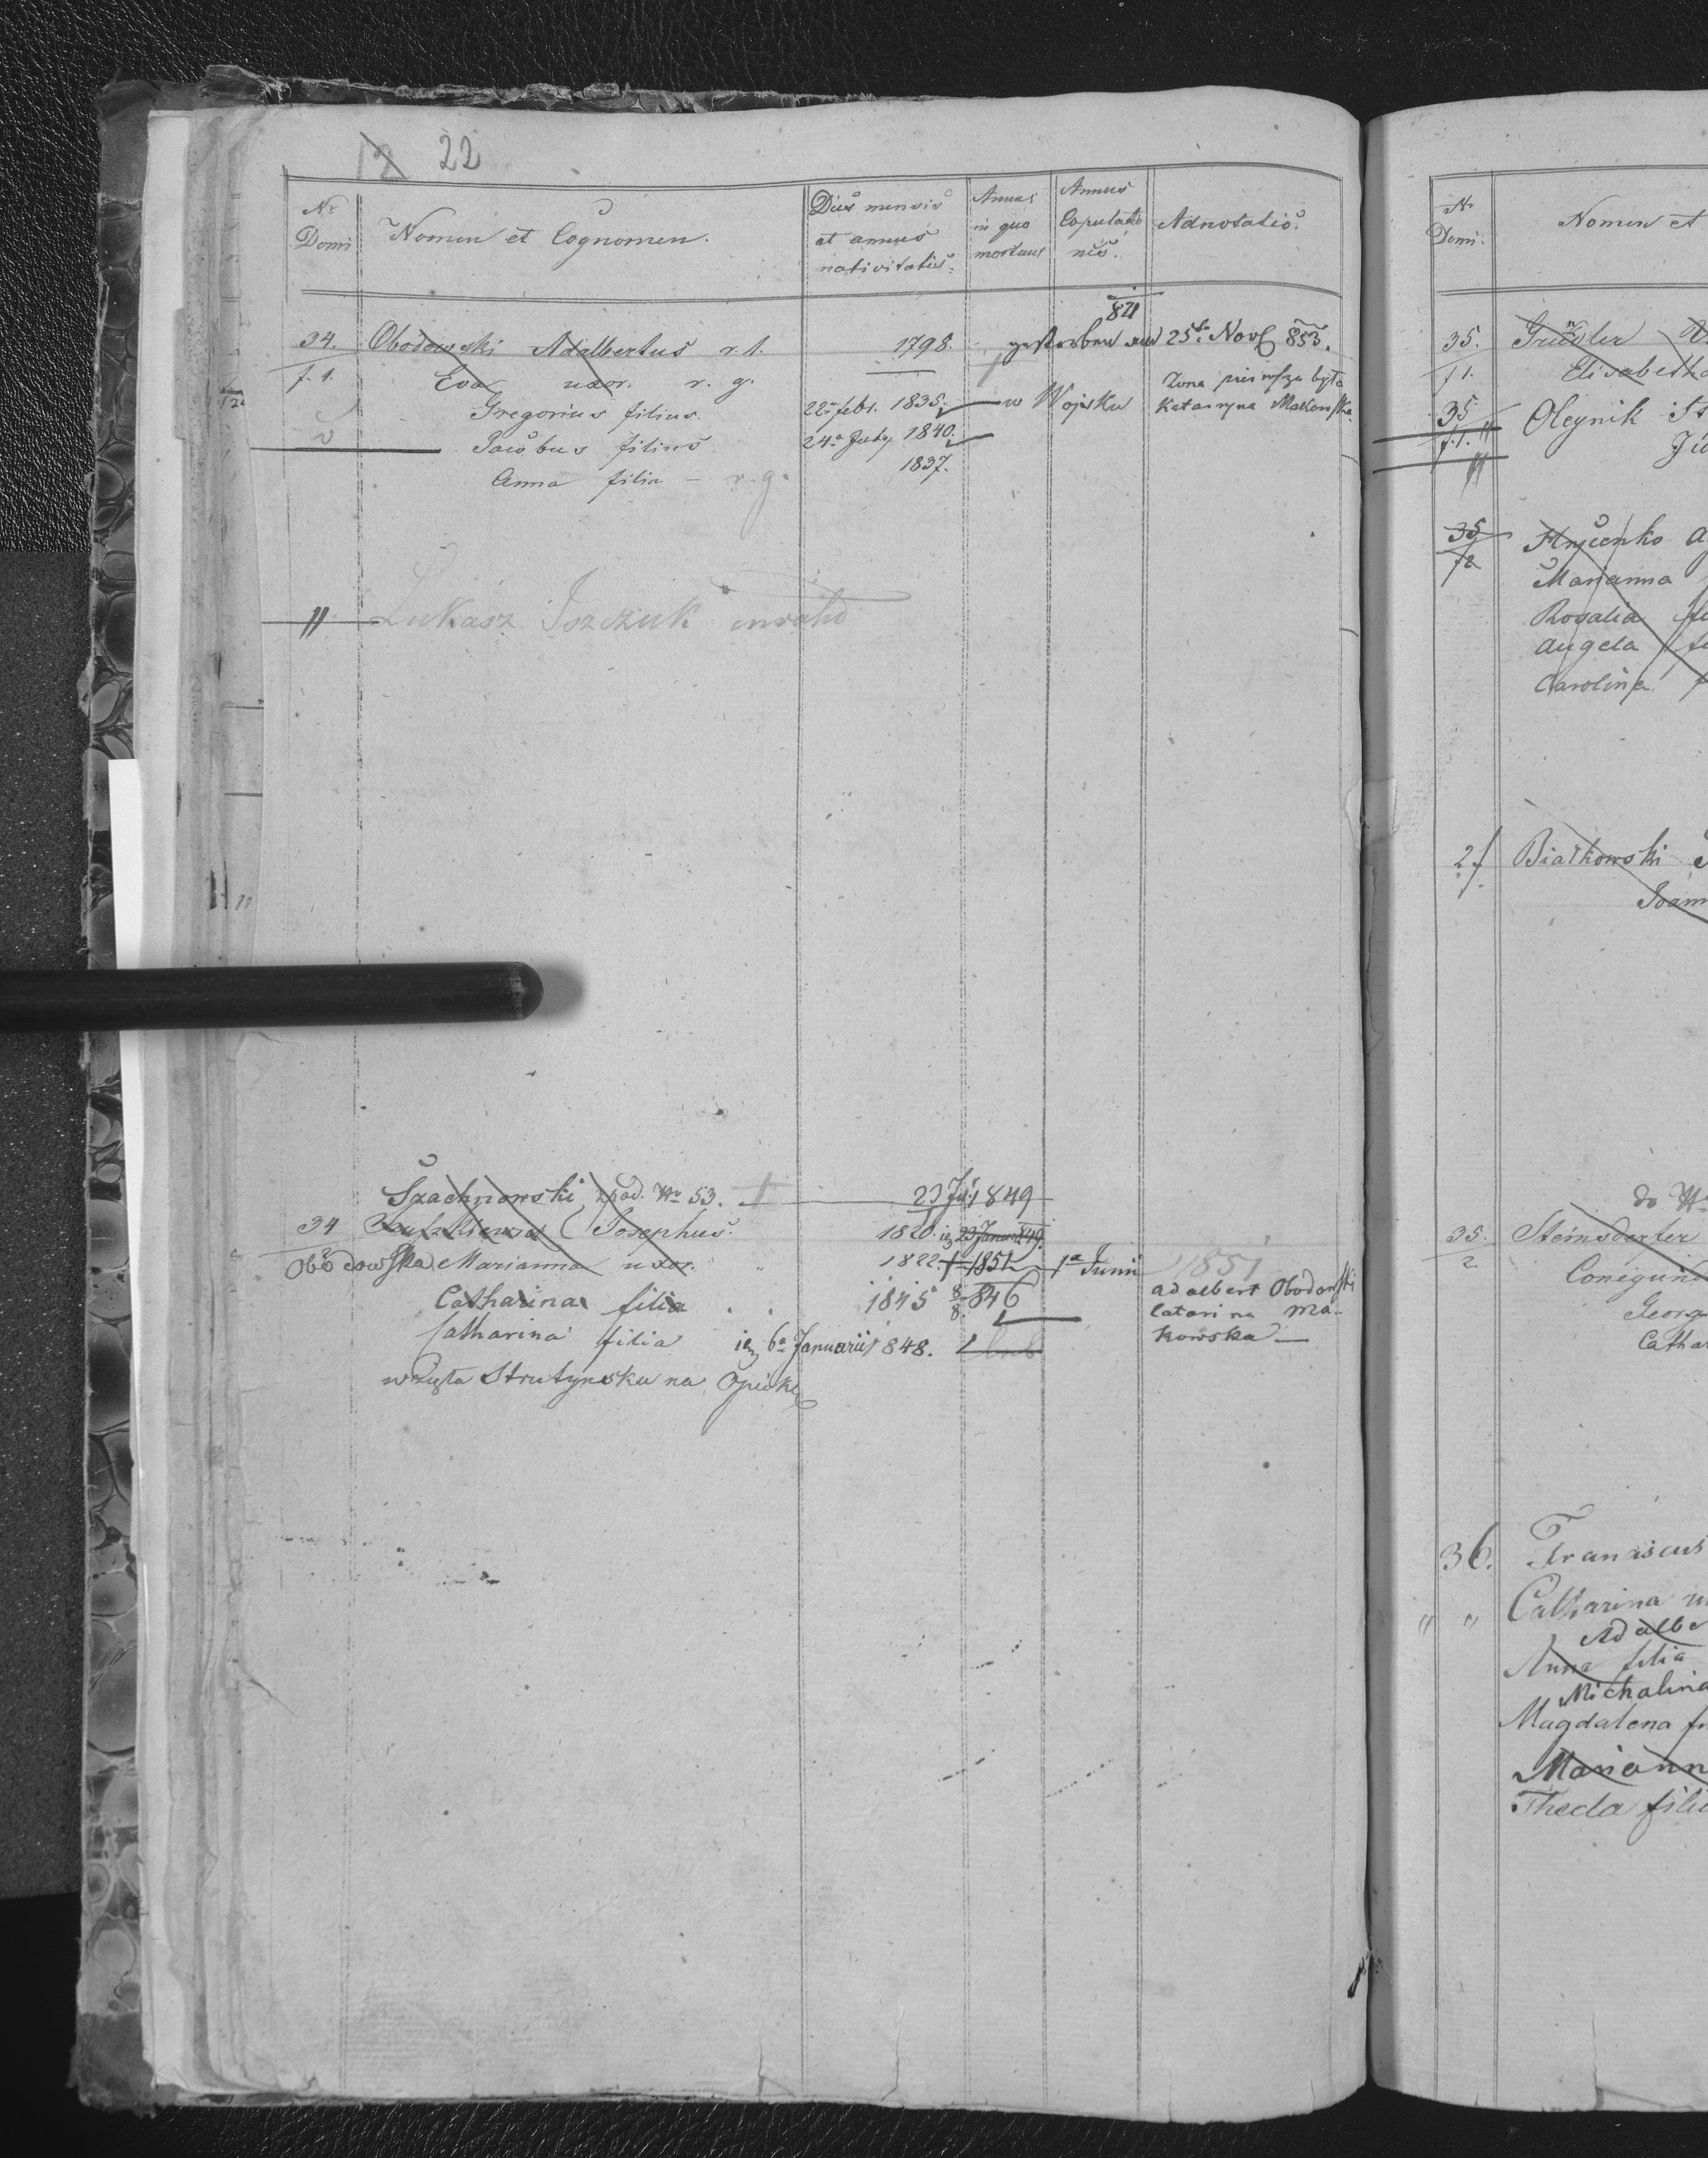 12 22
Nr Domi
Nomen et Cognomen.
Dies mensis et annus nativitatis.
Annus in quo mortuus
Annus Copulationis.
Adnotatio.
34. Obodowski Adalbertus r. l. 1798. gestorben am 25t Novb 853.
f. 1. Eva uxor. r. g.
841
Żona pierwsza była
Katarzyna Makowska
Gregorius filius 22a febr. 1835. w Wojsku
Jacobus filius 24a July 1840.
Anna filia – r. g. 1837.
Łukasz Iszczuk
Szachnowski zpod. Nr 53. 23 1849
34 Josephus. 1820. 23 Januar 849.
Obodowska Marianna uxor. " 1822. † 1851 1a Junii 1851
Catharina filia . . 1845 8/8 846
Adalbert Obodowski
Catarina Ma-
kowska —
Catharina filia 6a Januarii 1848.
wzięła Strutynska na Opiekę
Nr Domi.
Nomen et
35.
f 1. Elisabetha
35 Oleynik
f. 1.
35 Hryćenko
f 2 Marianna
Rosalia
Angela
Carolina
2 f Białkowski
do Nr
35. Steinsderfer
2
Georg
Cathar
36. Franciscus
" " Catharina
Adalbe
Anna filia
Michalina
Magdalena
Mariann
Thecla filia